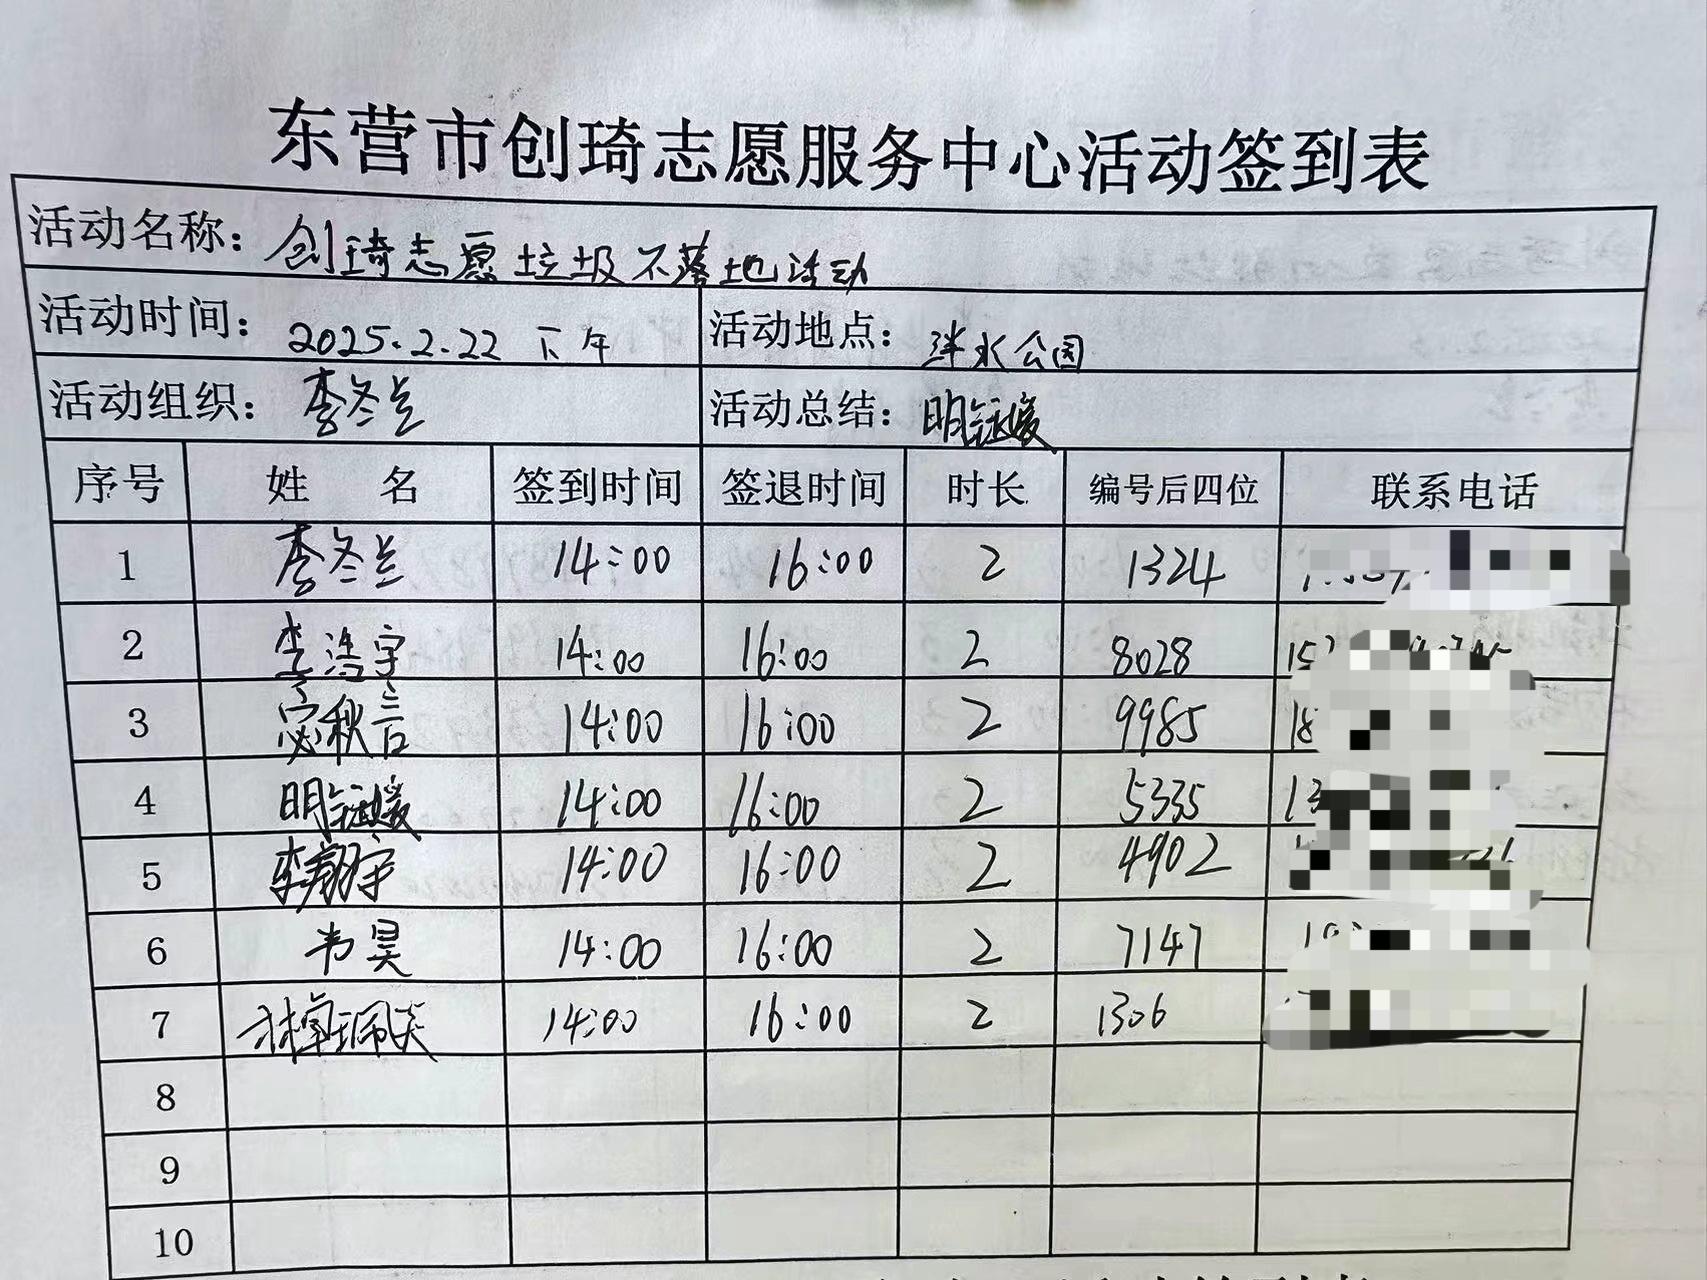 东营市创琦志愿服务中心活动签到表
活动名称：创琦志愿垃圾不落地活动
活动时间：2025.2.22 下午 活动地点：泮水公园
活动组织：李冬兰 活动总结：明钰媛
序号 姓 名 签到时间 签退时间 时长 编号后四位 联系电话
1 李冬兰 14:00 16:00 2 1324
2 李浩宇 14:00 16:00 2 8028
3 宓秋言 14:00 16:00 2 9985
4 明钰媛 14:00 16:00 2 5335
5 李翔宇 14:00 16:00 2 4902
6 韦昊 14:00 16:00 2 7147
7 14:00 16:00 2 1306
8
9
10